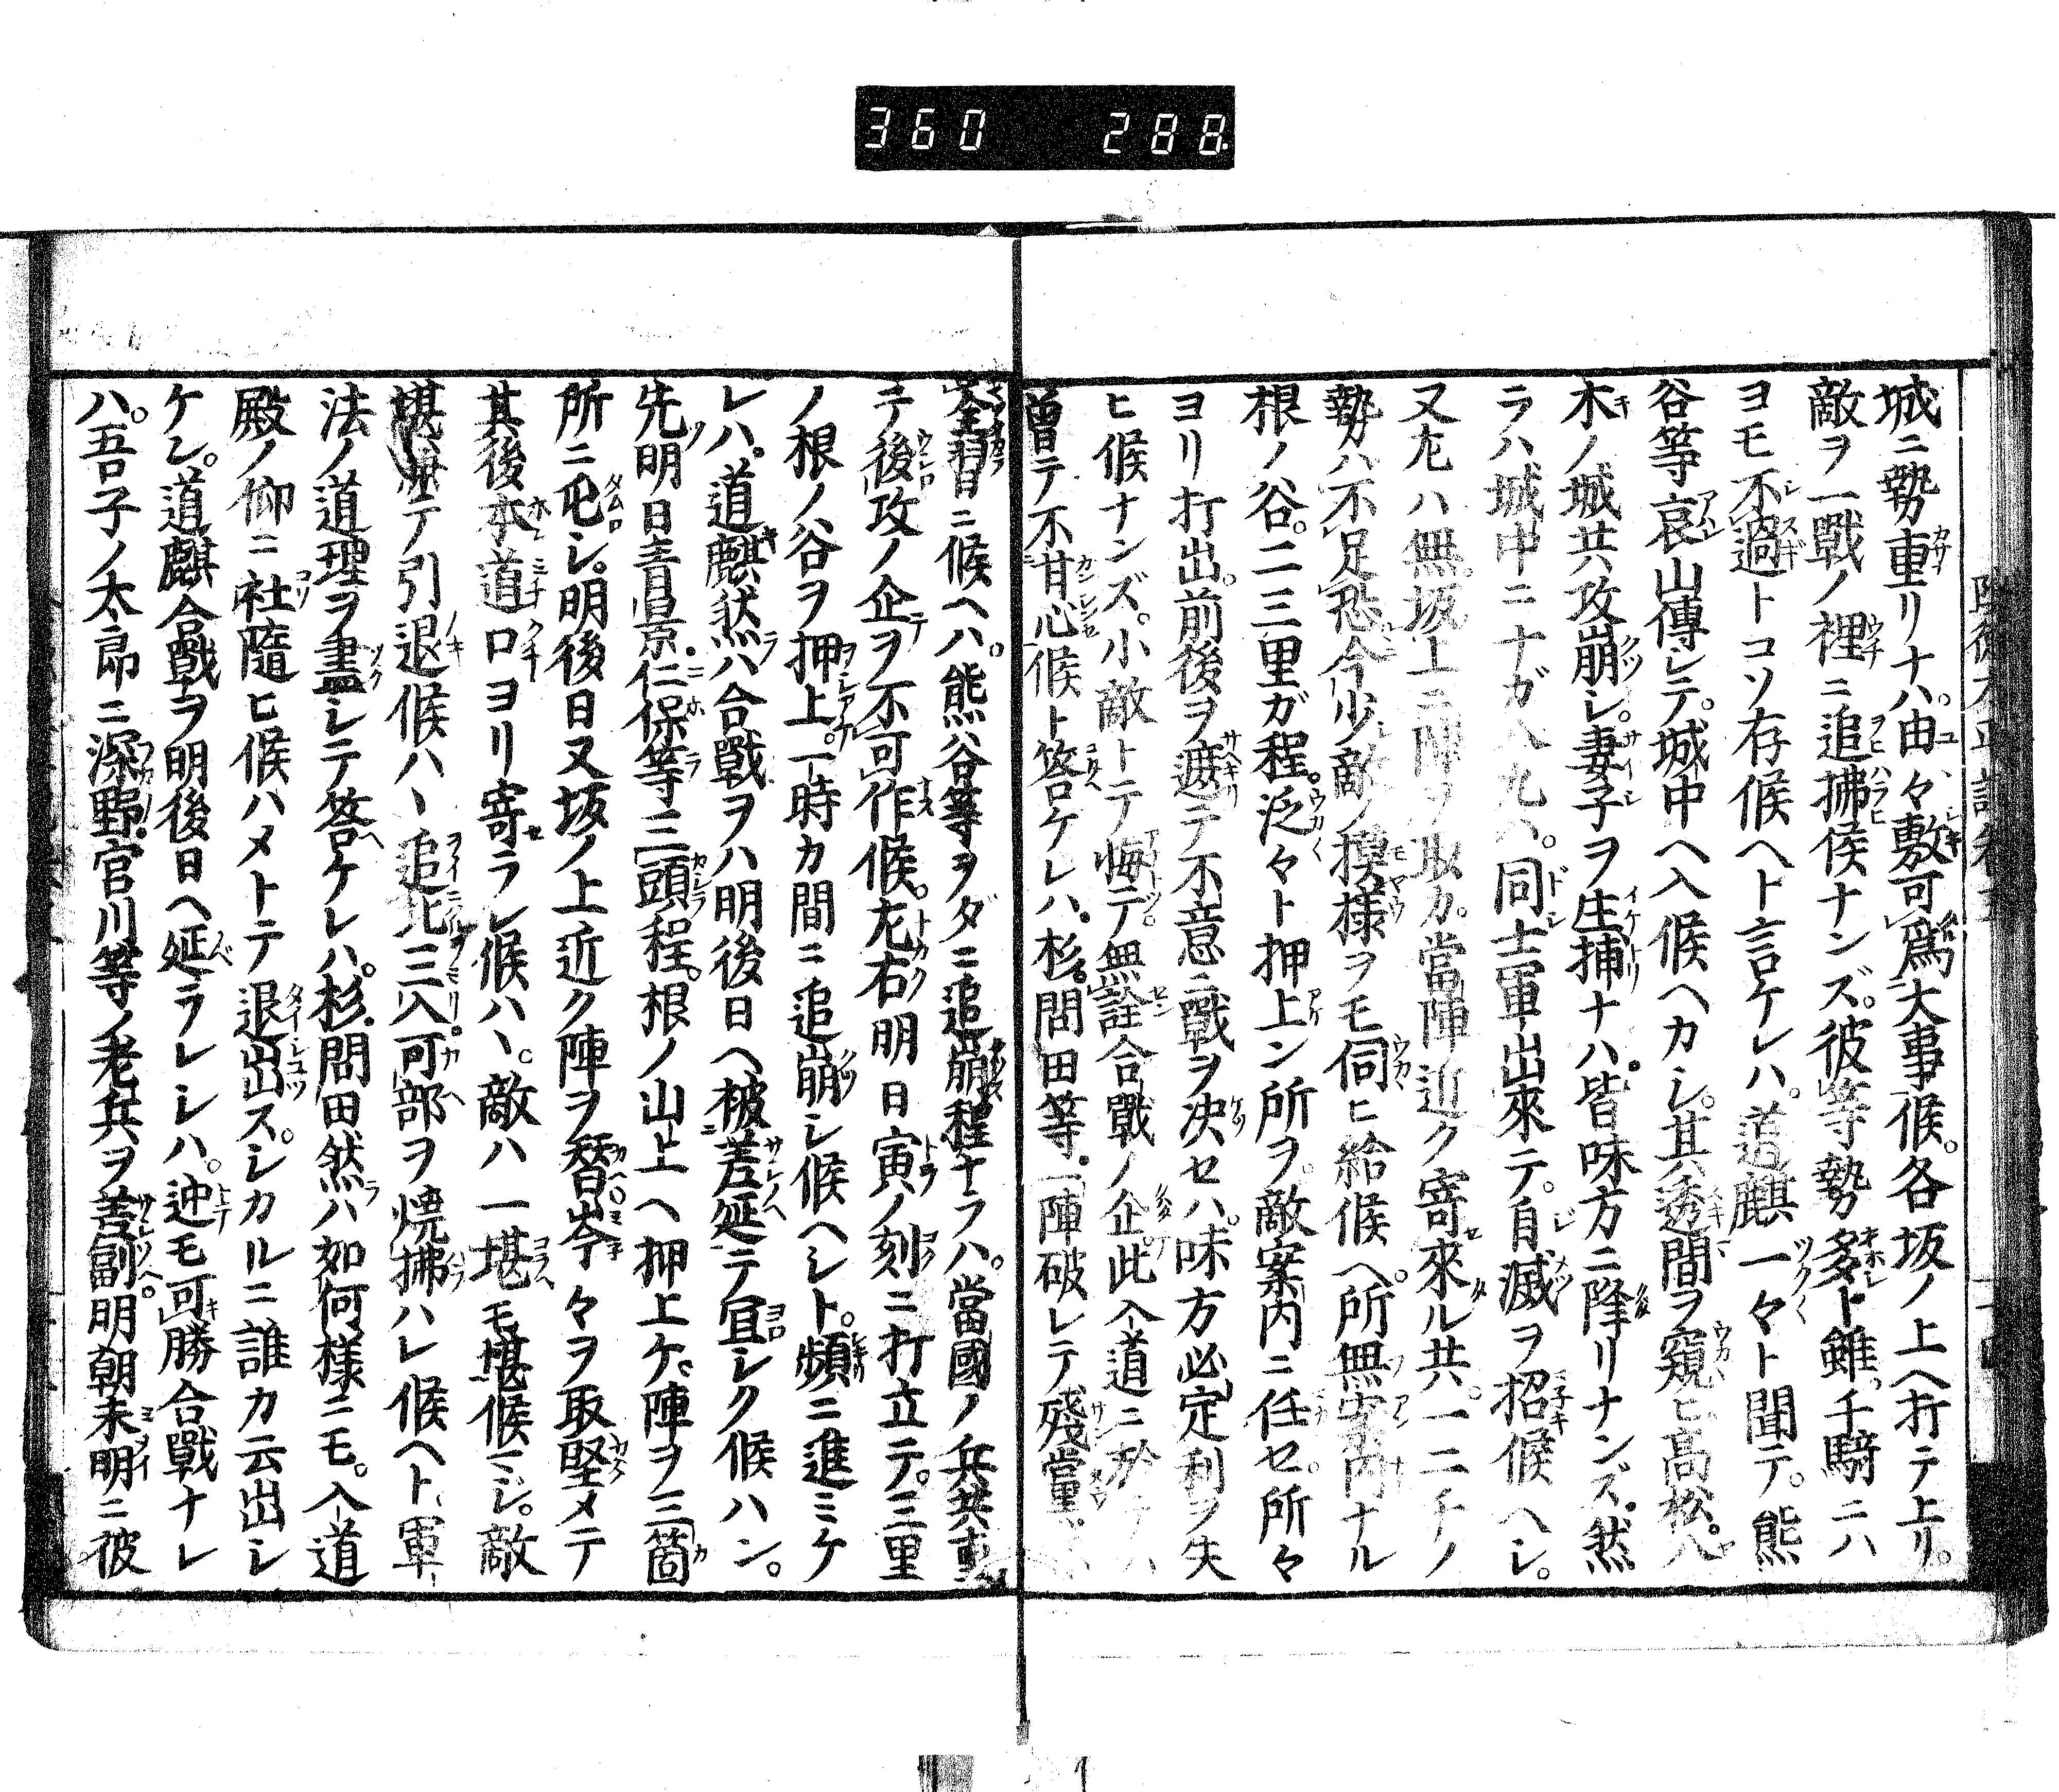 360 288
城ニ勢重リナハ。由々敷可為大事候。各坂ノ上ヘ打テ上リ。
敵ヲ一戰ノ裡ニ追拂候ナンズ。彼等勢多ト雖、千騎ニハ
ヨモ不過トコソ存候ヘト言ケレハ。道麒一々ト聞テ。熊
谷等哀山傳シテ。城中ヘ入候ヘカシ。其透間ヲ窺ヒ高松。八
木ノ城共攻崩シ。妻子ヲ生捕ナハ。皆味方ニ降リナンズ。然
ラハ城中ニナガ入九ハ。同士軍出來テ。自滅ヲ招候ヘシ。
又左ハ無。坂上ニ陣ヲ取カ。當陣近ク寄來ル共。一二千ノ
勢ハ不足恐。今少敵ノ摸樣ヲモ伺ヒ給候ヘ。所無案内ナル
根ノ谷。二三里ガ程。泛々ト押上ン所ヲ。敵案内ニ任セ。所々
ヨリ打出。前後ヲ遮テ不意ニ戰ヲ决セハ。味方必定利ヲ失
ヒ候ナンズ。小敵トテ侮テ無詮合戰ノ企。此入道ニ於テハ
曽テ不甘心候ト答ケレハ。杉。問田等。一陣破レテ殘黨
全習ニ候ヘハ。熊谷等ヲダニ追崩程ナラハ。當國ノ兵共重
テ後攻ノ企ヲ不可作候。左右明日寅ノ刻ニ打立テ。三里
ノ根ノ谷ヲ押上。一時カ間ニ追崩シ候ヘシト。頻ニ進ミケ
レハ。道麒然ハ合戰ヲハ明後日ヘ被差延テ宜シク候ハン。
先明日青景。仁保等三頭程。根ノ山上ヘ押上ケ。陣ヲ三箇
所ニ屯シ。明後日又坂ノ上近ク陣ヲ替。岑々ヲ取堅メテ
其後本道口ヨリ寄ラレ候ハヽ。敵ハ一堪モ堪候マジ。敵
堪兼テ引退候ハヽ追北三入可部ヲ燒拂ハレ候ヘト、軍
法ノ道理ヲ盡シテ答ケレハ。杉。問田然ハ如何樣ニモ。入道
殿ノ仰ニ社隨ヒ候ハメトテ退出ス。シカルニ誰カ云出シ
ケレ。道麒合戰ヲ明後日ヘ延ラレシハ。迚モ可勝合戰ナレ
ハ。吾子ノ太郎ニ深野。宮川等ノ老兵ヲ差副。明朝未明ニ彼